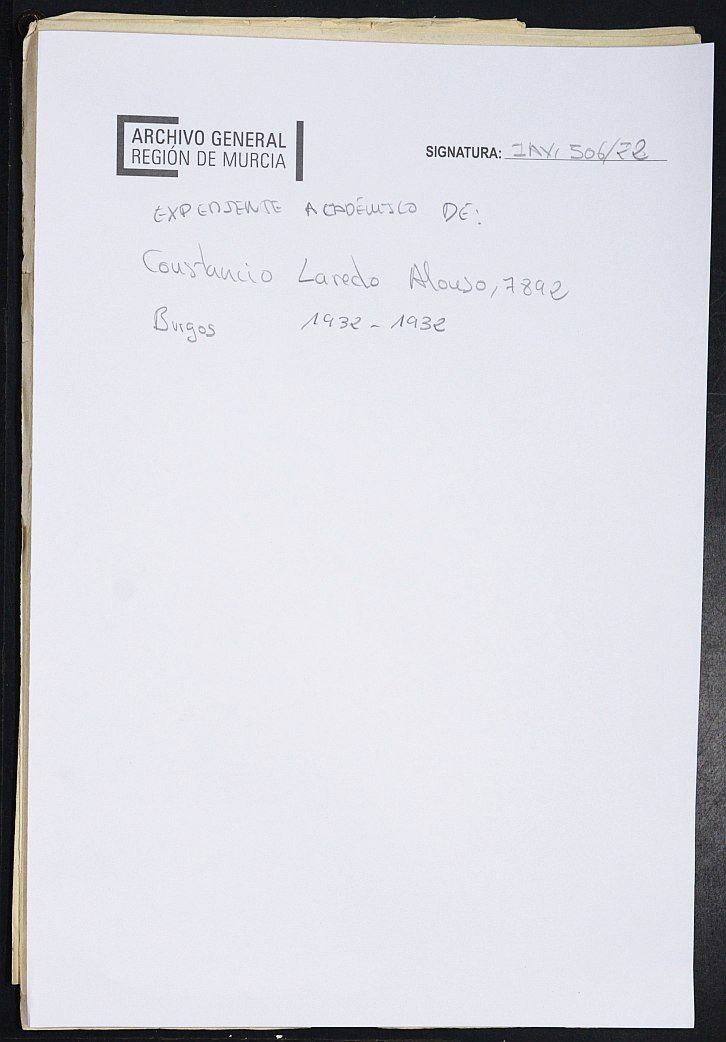 ARCHIVO GENERAL
REGIÓN DE MURCIA
SIGNATURA: IAX, 506/72
EXPEDIENTE ACADÉMICO DE:
Constancio Laredo Alonso, 7892
Burgos 1932 - 1932